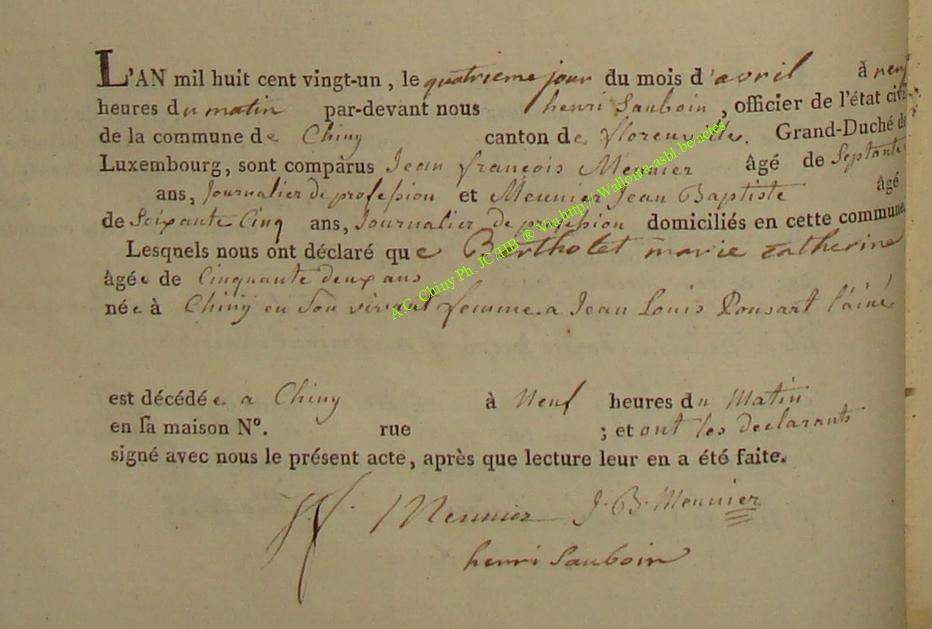 L'AN mil huit cent vingt-un, le quatrieme jour du mois d'avril à neuf
heures du matin par-devant nous henri Sauboin, officier de l'état civil
de la commune de Chiny canton de florenville. Grand-Duché de
Luxembourg, sont comparus Jean françois Meunier âgé de Septante
ans, Journalier de profession et Meunier Jean Baptiste âgé
de Soixante Cinq ans, Journalier de profession domiciliés en cette commune.
Lesquels nous ont déclaré que Bertholet marie catherine
âgée de Cinquante deux ans
née à Chiny en Son vivant femme a Jean Louis Ponsart l'ainé
est décédée a Chiny à Neuf heures du Matin
en sa maison N°. rue ; et ont les declarants
signé avec nous le présent acte, après que lecture leur en a été faite.
J f. Meunier J. B. Meunier
henri Sauboin
A.C. Chiny Ph. JC AHB ® Via http://Wallonia.asbl.be/actes